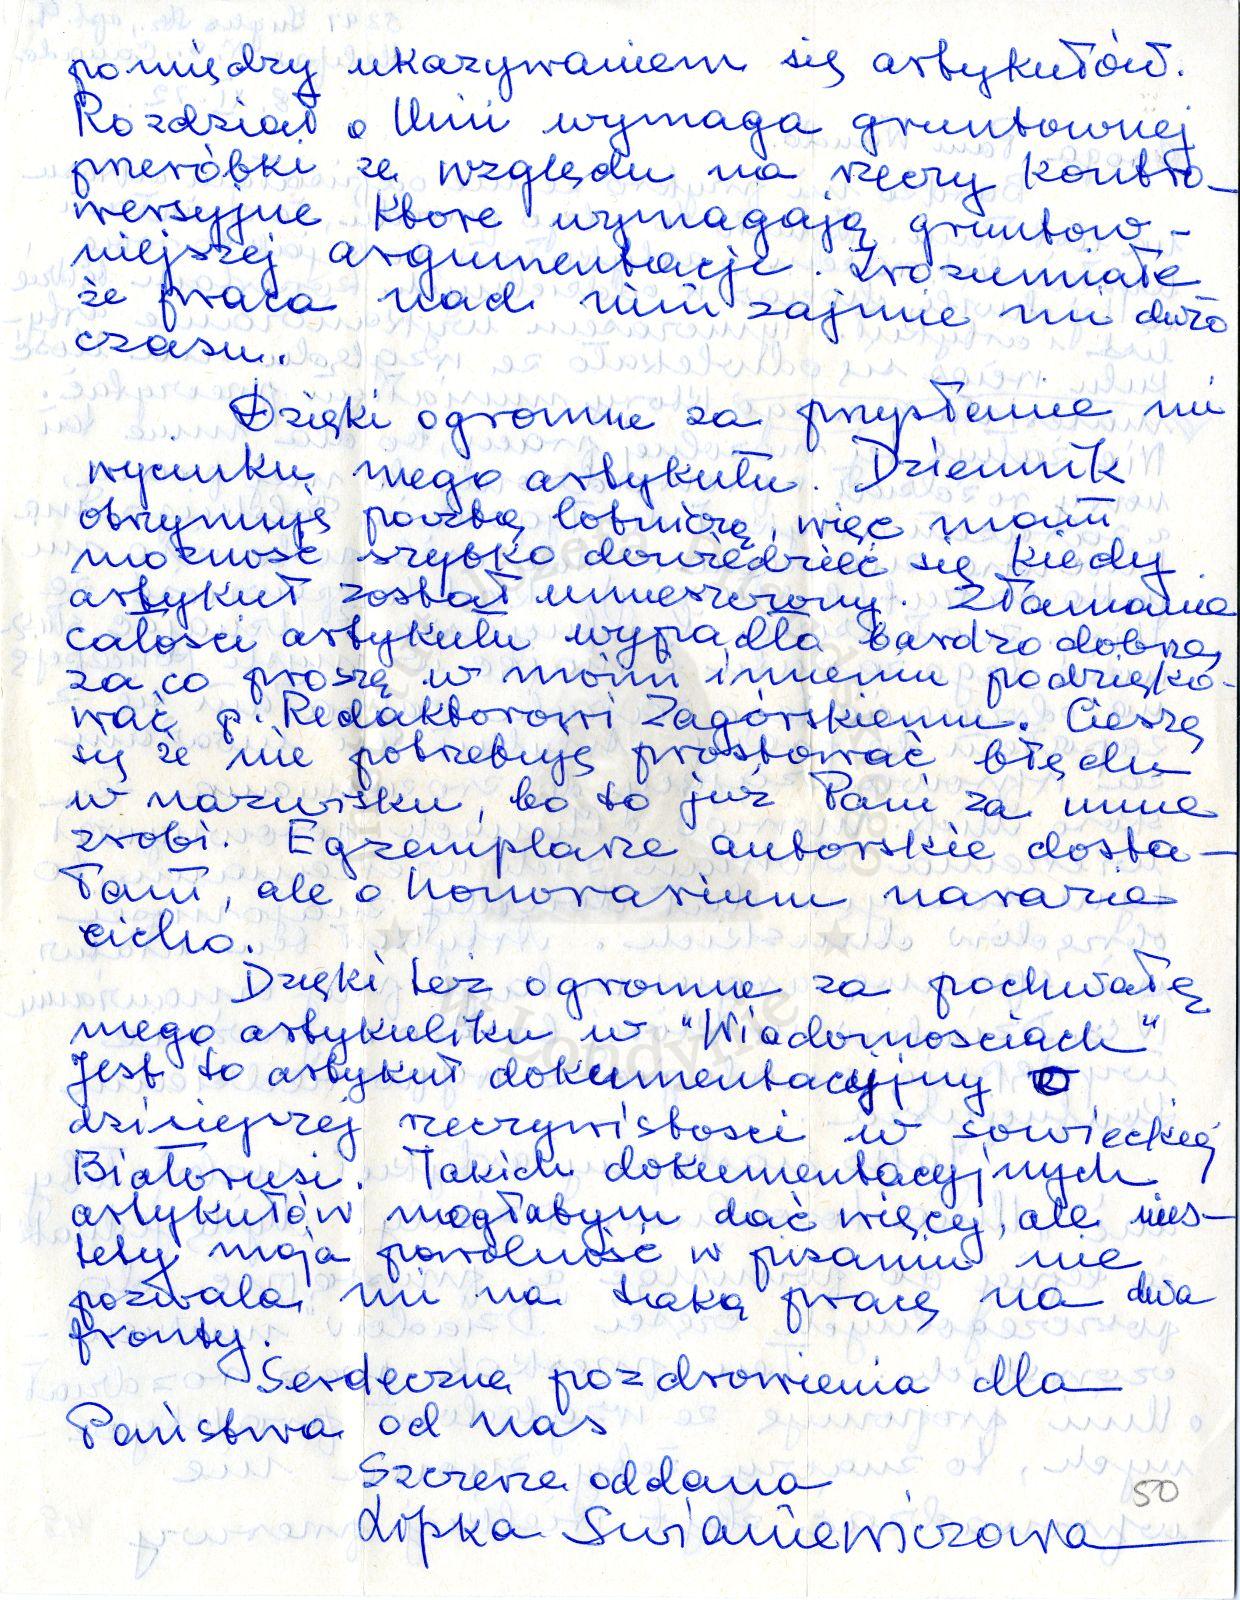 pomiędzy ukazywaniem się artykułów.
Rozdział o Unii wymaga gruntownej
przeróbki ze względu na rzeczy kontro-
wersyjne ktore wymagają gruntow-
niejszej argumentacji. Zrozumiałe
że praca nad nim zajmie mi dużo
czasu.
Dzięki ogromne za przysłanie mi
wycinku mego artykułu. Dziennik
otrzymuję pocztą lotniczą, więc mam
możność szybko dowiedzieć się kiedy
artykuł został umieszczony. Złamanie
całości artykułu wypadło bardzo dobrze,
za co proszę w moim imieniu podzięko-
wać p. Redaktorowi Zagórskiemu. Cieszę
się że nie potrzebuję prostować błędu
w nazwisku, bo to już Pani za mnie
zrobi. Egzemplarze autorskie dosta-
łam, ale o honorarium narazie
cicho.
Dzięki też ogromne za pochwałę
mego artykuliku w "Wiadomościach"
Jest to artykuł dokumentacyjny o
dzisiejszej rzeczywistosci w sowieckiej
Białorusi. Takich dokumentacyjnych
artykułów mogłabym dać więcej, ale nies-
tety moja powolność w pisaniu nie
pozwala mi na taką pracę na dwa
fronty.
Serdeczne pozdrowienia dla
Państwa od nas
Szczerze oddana
Lipka Swianiewiczowa
50
w Londynie